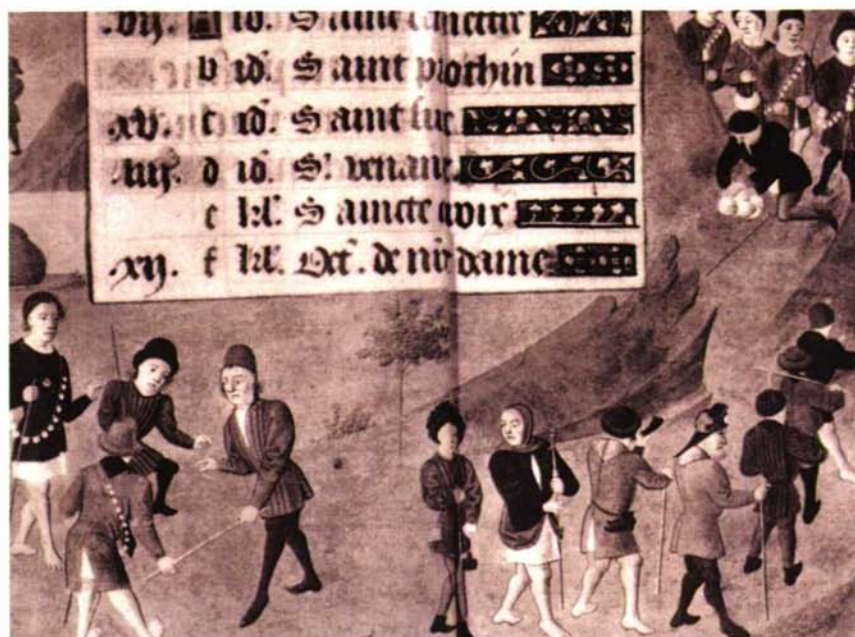 .vij. A id.
v id. Saint prothin
.xv. c id. Saint luc
.iiij. d id. St. venant
e kl. Saincte
.xij. f kl. Oct. de nr̄e dame